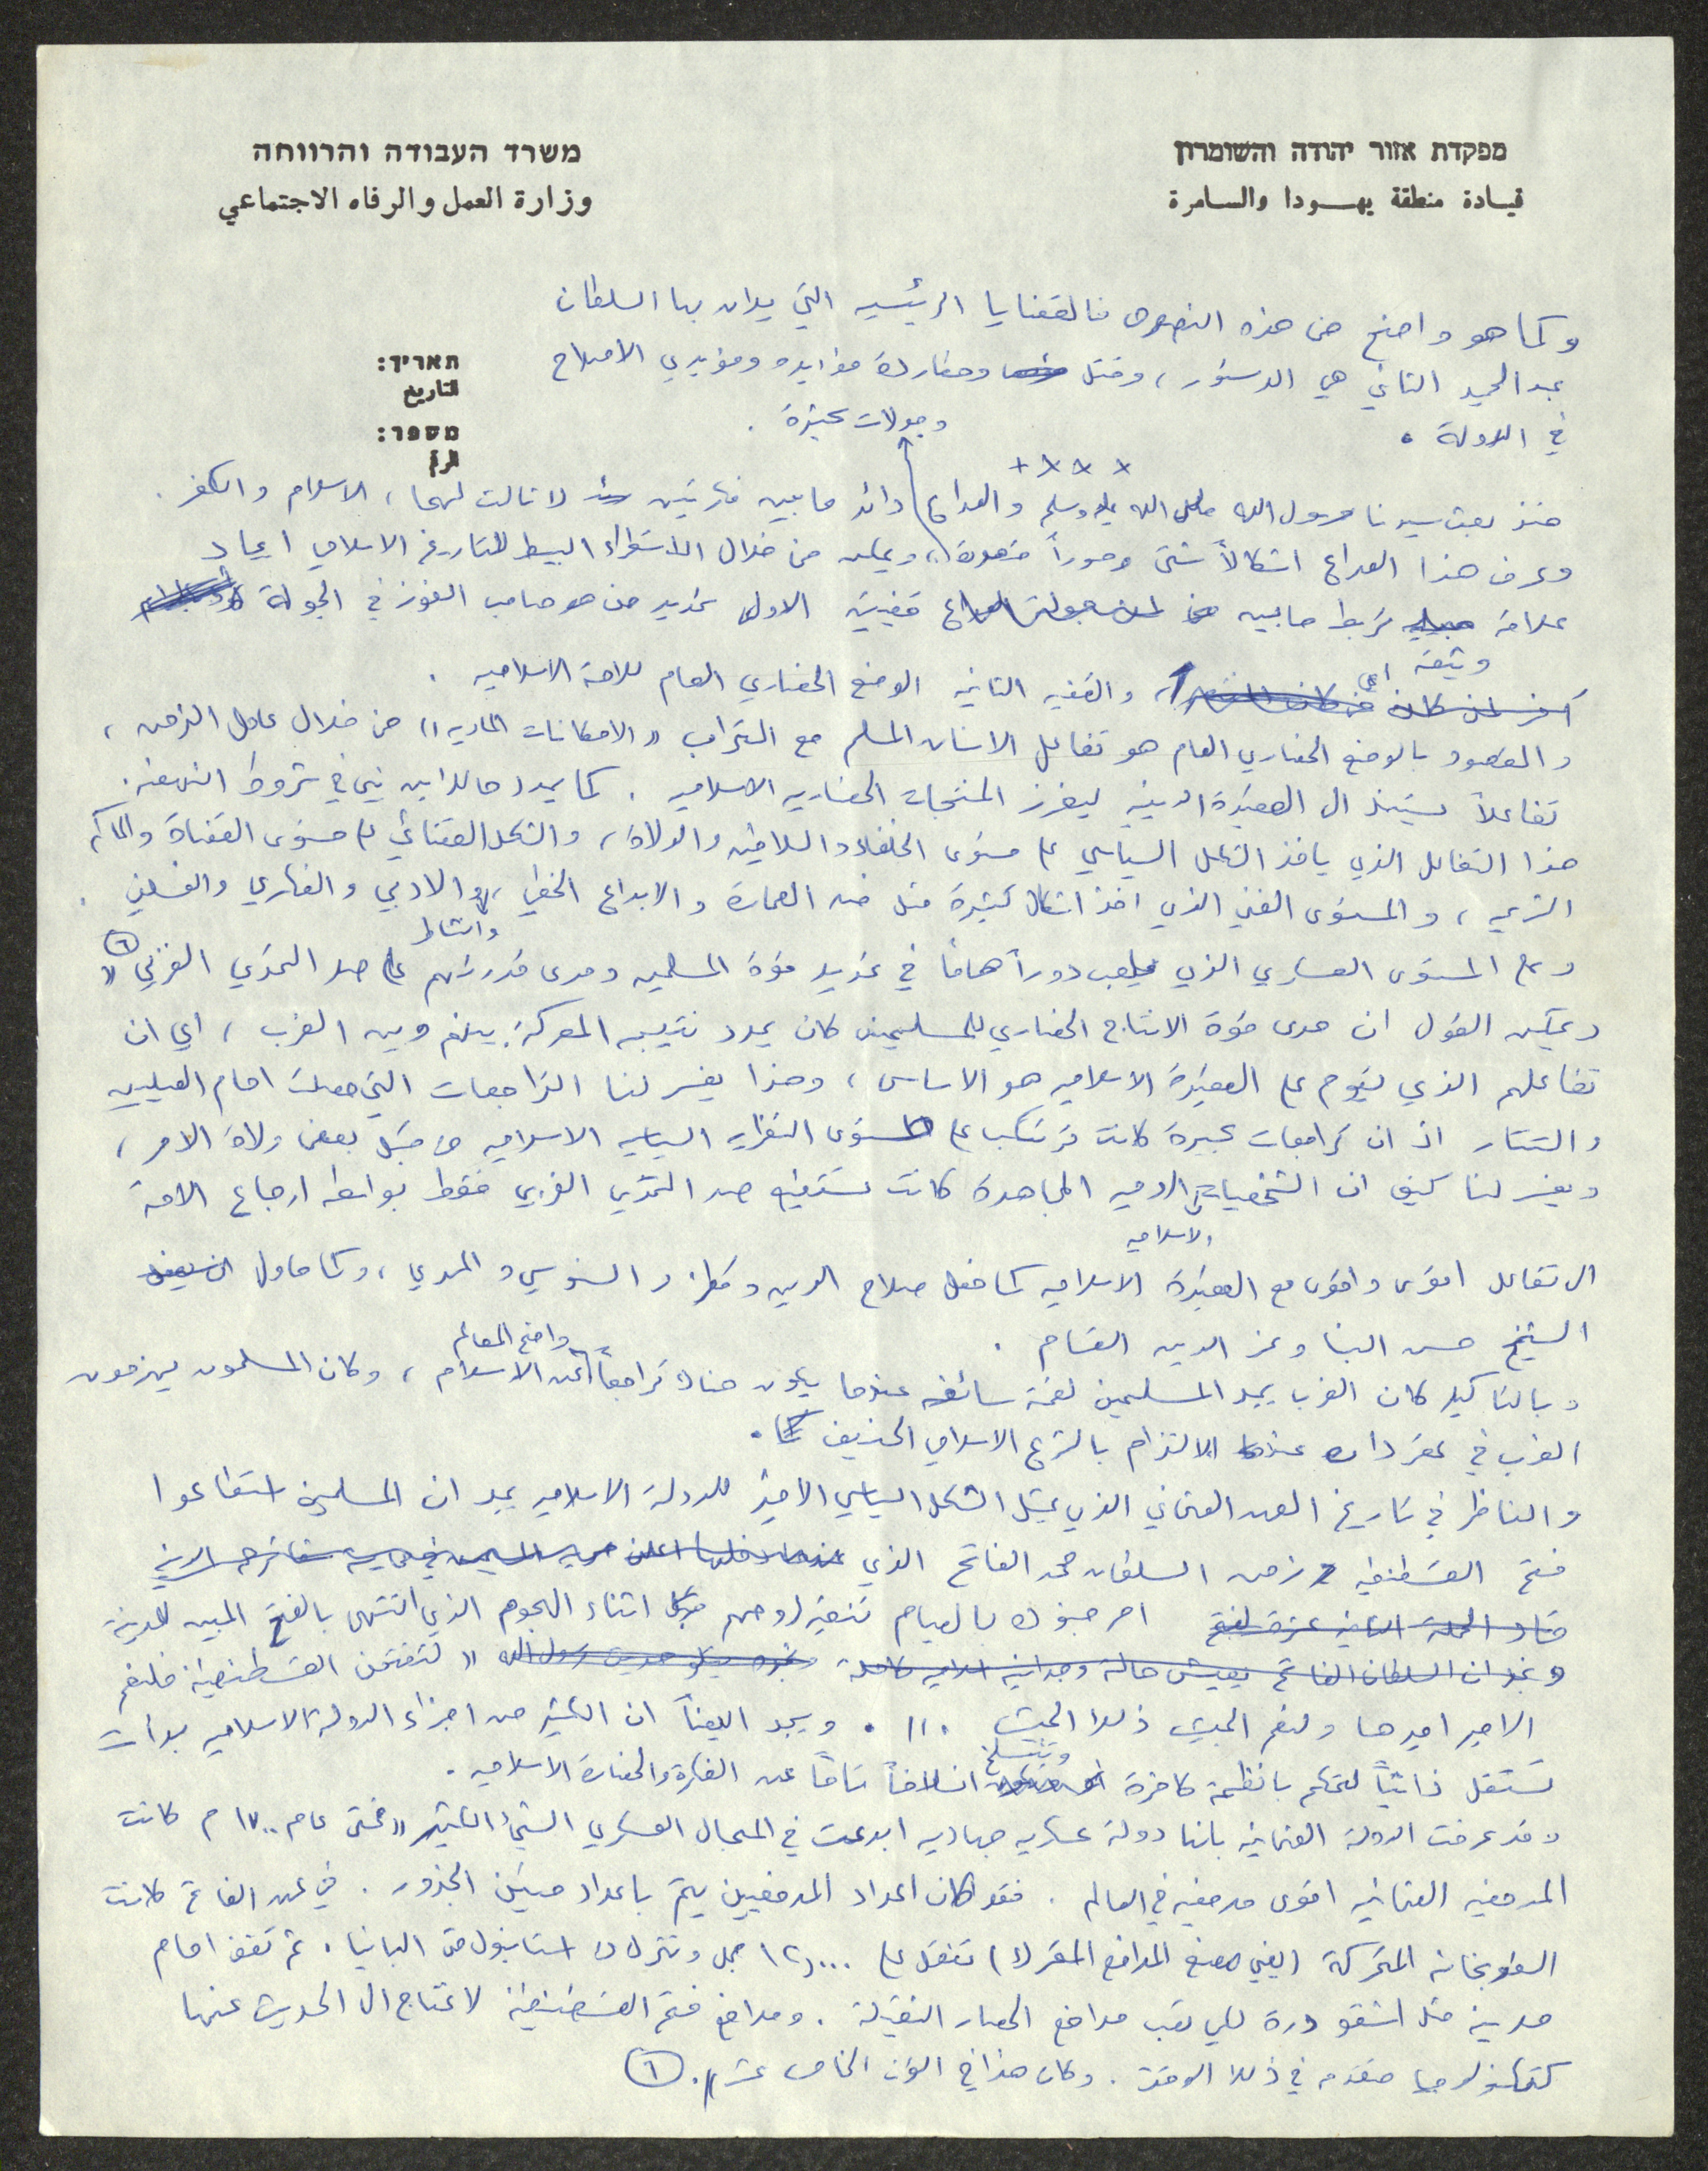 מפקדת אזור יהודה והשומרון
قيادة منطقة يهودا والسامرة
משרד העבודה והרווחה
وزارة العمل والرفاه الاجتماعي
תאריך:
التاريخ
מספר:
الرقم
وكما هو واضح من هذه النصوص فالقضايا الرئيسيه التي يدان بها السلطان
عبد الحميد الثاني هي الدستور، وقتل ومطاردة مؤيديه ومؤيدي الاصلاح
في الدولة .
× × × +
وجولات كثيرة .
منذ بعث سيدنا رسول الله صلى الله عليه وسلم والصراع دائر ما بين فكرتين لا ثالث لهما، الاسلام والكفر .
وعرف هذا الصراع اشكالاً شتى وصوراً متعددة، ويمكن من خلال الاستقراء البسيط للتاريخ الاسلامي ايجاد
علاقة تربط ما بين قضيتين الاولى تحديد من هو صاحب الفوز في الجولة
والقضيه الثانيه الوضع الحضاري العام للامة الاسلاميه .
والمقصود بالوضع الحضاري العام هو تفاعل الانسان المسلم مع التراب "الامكانات الماديه" من خلال عامل الزمن،
تفاعلاً يستند الى العقيدة الدينيه ليفرز المنتجات الحضاريه الاسلاميه . كما يحدد مالك ابن نبي في شروط النهضه .
هذا التفاعل الذي يأخذ الشكل السياسي على مستوى الخلفاء والسلاطين والولاة، والشكل القضائي على مستوى القضاة والمحاكم
الشرعيه، والمستوى الفني الذي اخذ اشكال كثيرة مثل فن العمارة والابداع الخطي، والادبي والفكري والفلسفي .
وعلى المستوى العسكري الذي يلعب دوراً هاماً في تحديد قوة المسلمين ومدى قدرتهم على صد التحدي الغربي "٦
ويمكن القول ان مدى قوة الانتاج الحضاري للمسلمين كان يحدد نتيجه المعركة بينهم وبين الغرب، اي ان
تفاعلهم الذي يقوم على العقيدة الاسلاميه هو الاساس، وهذا يفسر لنا التراجعات التي حصلت امام الصليبيين
والتتار اذ ان تراجعات كبيرة كانت ترتكب على المستوى النظريه السياسيه الاسلاميه من قبل بعض ولاة الامر،
ويفسر لنا كيف ان الشخصيات الاسلاميه المجاهدة كانت تستطيع صد التحدي الغربي فقط بواسطه ارجاع الامة
الاسلاميه
الى تفاعل اقوى واقوى مع العقيدة الاسلاميه كما فعل صلاح الدين وقطز والسنوسي والمهدي، وكما حاول
الشيخ حسن البنا وعز الدين القسام .
واضح المعالم
وبالتاكيد كان الغرب يجد المسلمين لقمة سائغه عندما يكون هناك تراجعاً عن الاسلام، وكان المسلمون يهزمون
الغرب في عقر داره عندما الالتزام بالشرع الاسلامي الحنيف .
والناظر في تاريخ العهد العثماني الذي يمثل الشكل السياسي الاخير للدولة الاسلاميه يجد ان المسلمين استطاعوا
فتح القسطنطينيه زمن السلطان محمد الفاتح الذي
امر جنوده بالصيام اثناء الهجوم الذي انتهى بالفتح المبين للمدينة
ونجد ان السلطان الفاتح يعيش حالة وجدانيه اسلاميه كامله "لتفتحن القسطنطينية فلنعم
الامير اميرها ولنعم الجيش ذلك الجيش" . ويجد ايضاً ان الكثير من اجزاء الدولة الاسلاميه بدأت
تستقل ذاتياً لتحكم بانظمة كافرة وتنسلخ انسلاخاً تاماً عن الفكرة والحضارة الاسلاميه .
وقد عرفت الدولة العثمانيه بانها دولة عسكريه جهاديه ابدعت في المجال العسكري الشيء الكثير "فحتى عام ١٧٠٠ م كانت
المدفعيه العثمانيه اقوى مدفعيه في العالم . فقد كان اعداد المدفعيين يتم باعداد متين الجذور . في عهد الفاتح كانت
الطوبخانه المتحركة (يعني مصنع المدافع المتحرك) تنتقل على ١٢٠٠٠ جمل وتتحرك من استانبول حتى البانيا . ثم تقف امام
مدينة مثل اشقودرة لكي تصب مدافع الحصار الثقيلة . ومدافع فتح القسطنطينية لا تحتاج الى الحديث عنها
كتكنولوجيا متقدمه في ذلك الوقت . وكان هذا في القرن الخامس عشر". ٦